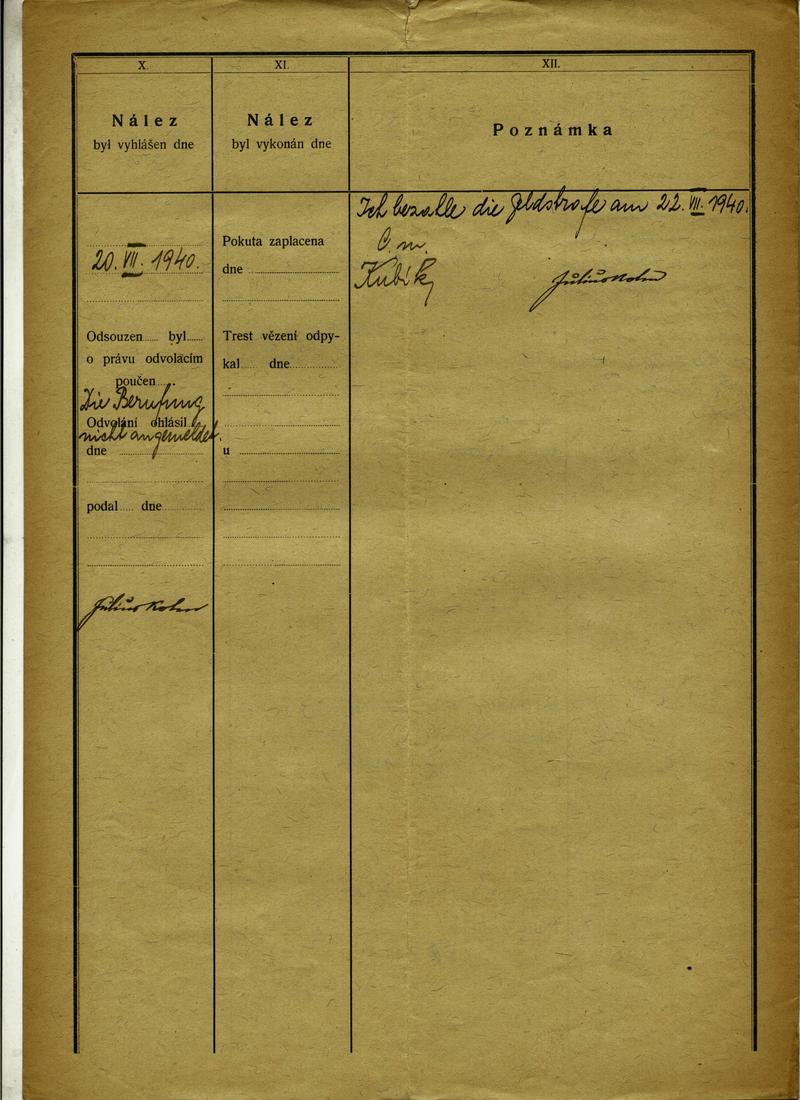 X.
Nález
byl vyhlášen dne
20. VII. 1940.
Odsouzen byl
o právu odvolacím
poučen
Die Berufung
Odvolání ohlásil
nicht angemeldet.
dne
podal dne
Julius Kohn
XI.
Nález
byl vykonán dne
Pokuta zaplacena
dne
Trest vězení odpy-
kal dne
u
XII.
Poznámka
Ich bezalle die Geldstrafe am 22. VII. 1940.
Kubík
Julius Kohn